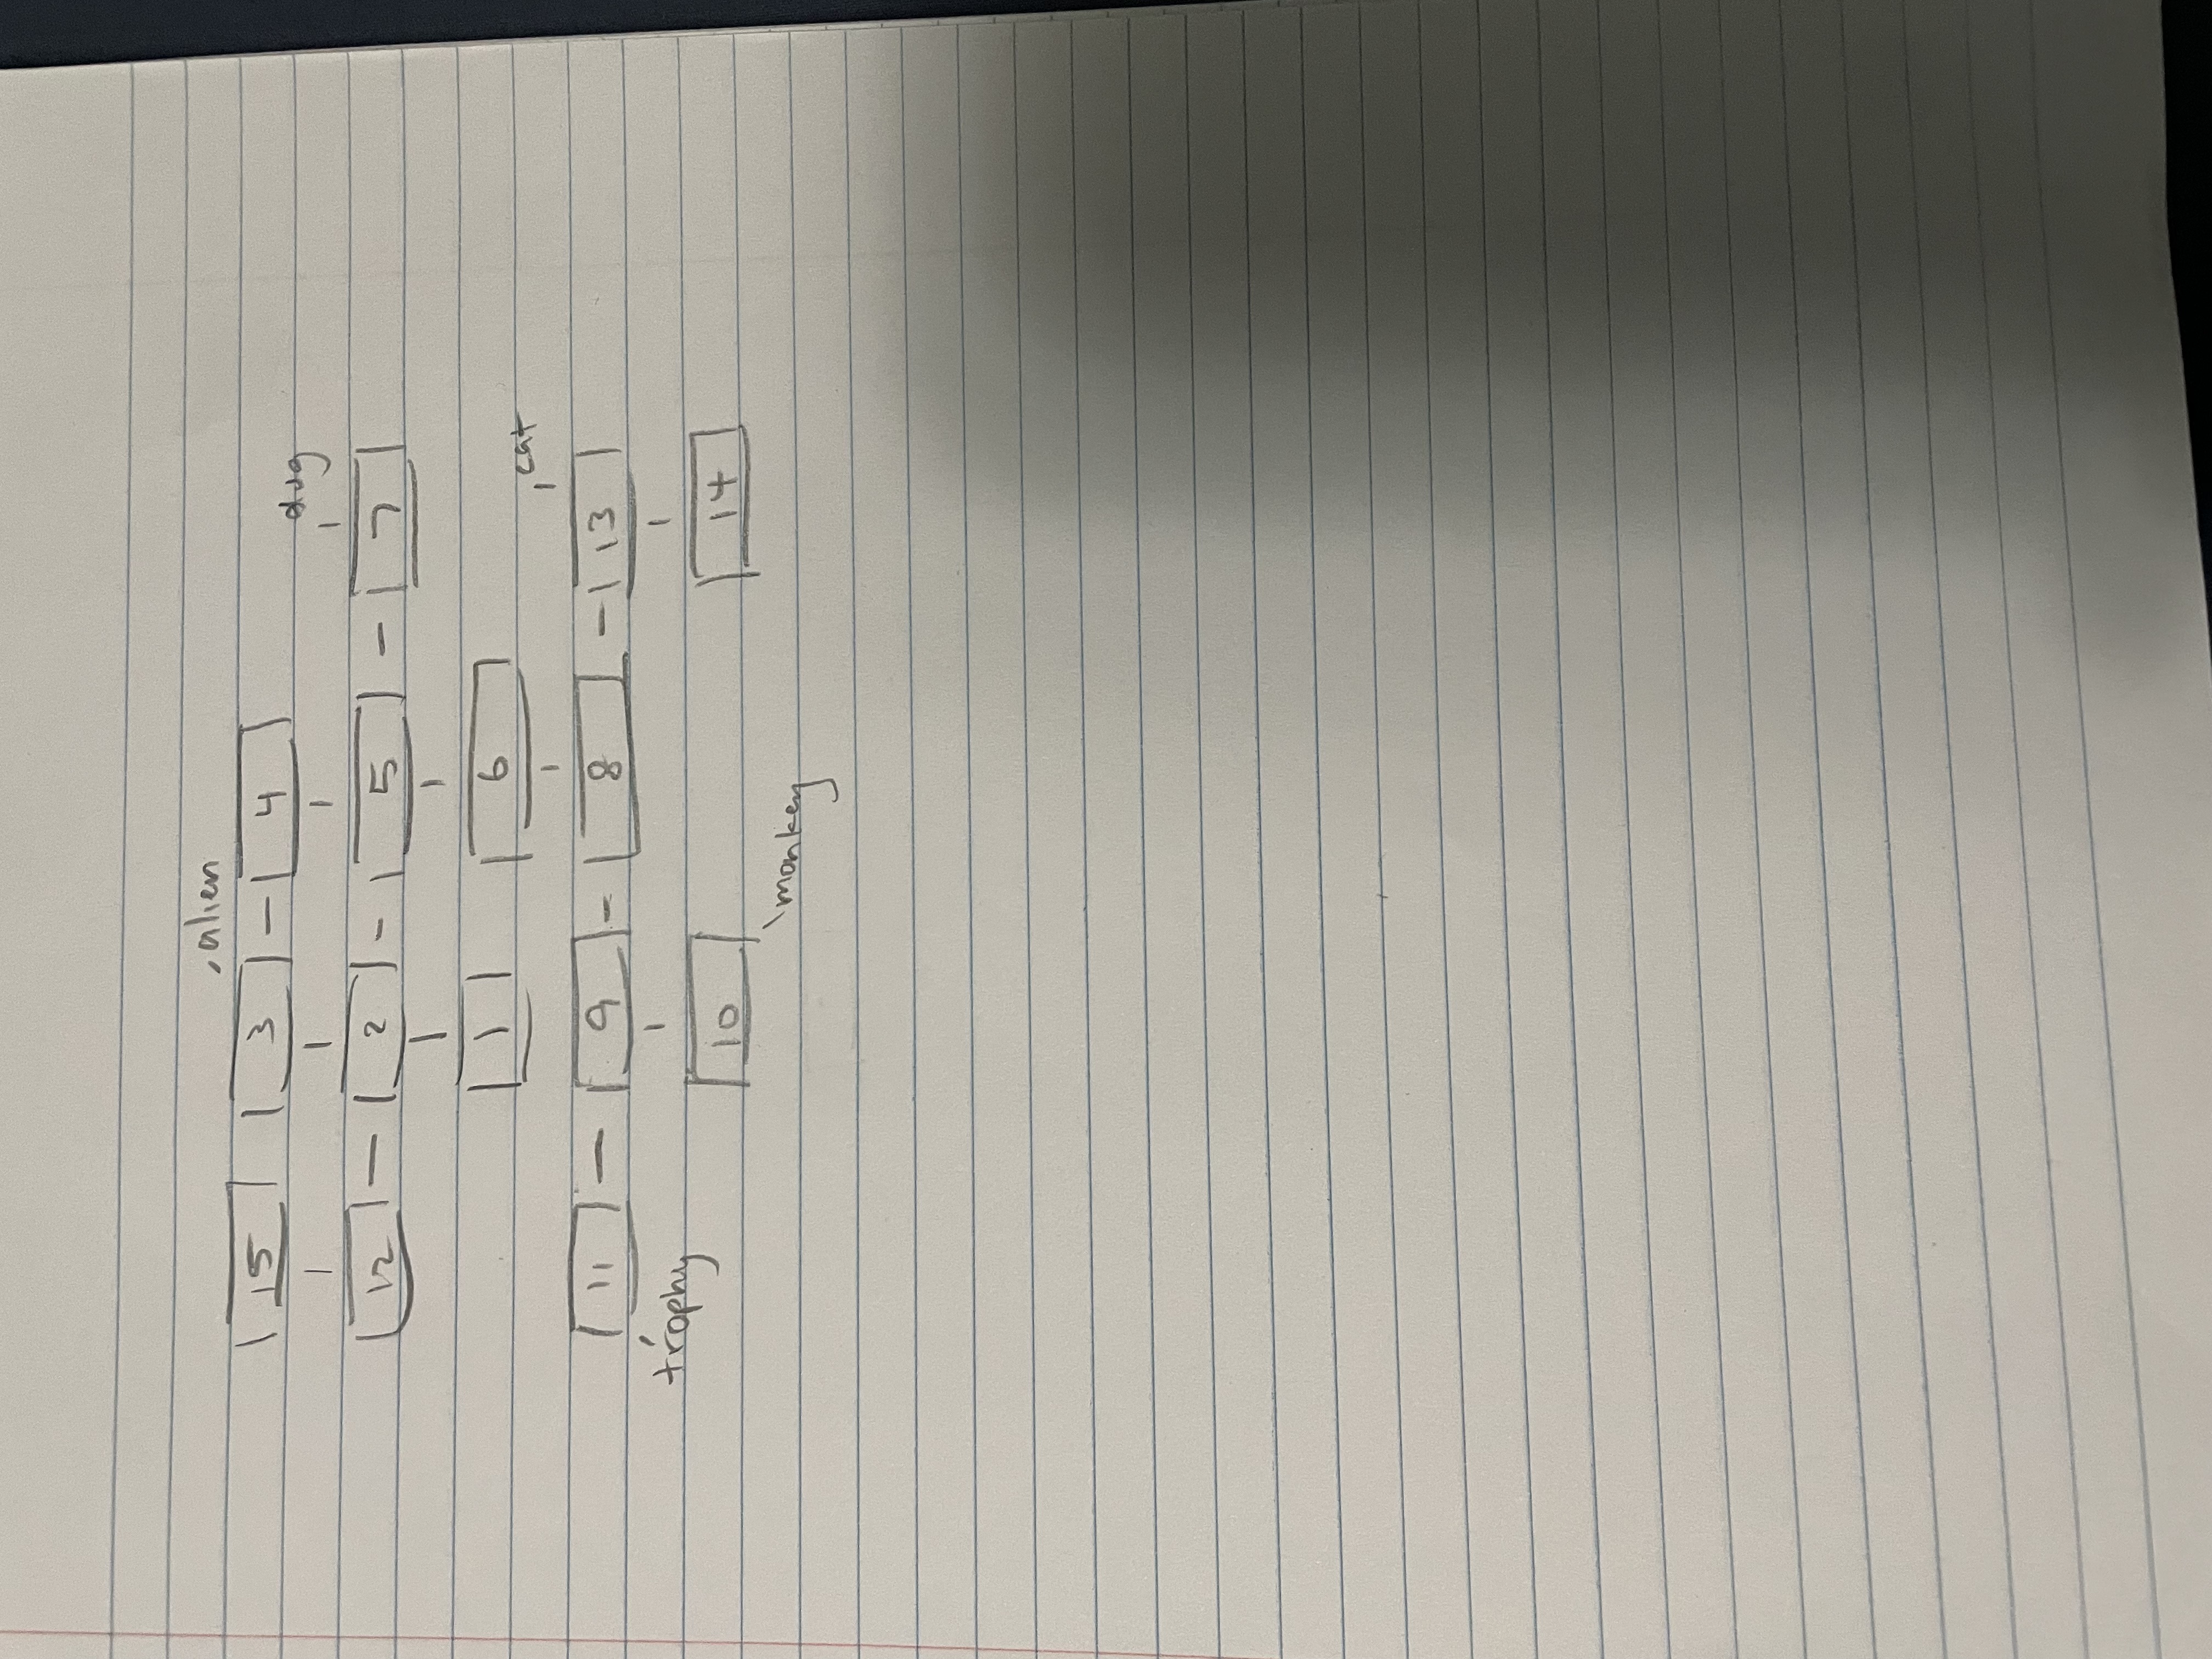 alien
15 3 - 4
dog
12 - 2 - 5 - 7
1 6
cat
11 - 9 - 8 - 13
trophy
10 14
monkey